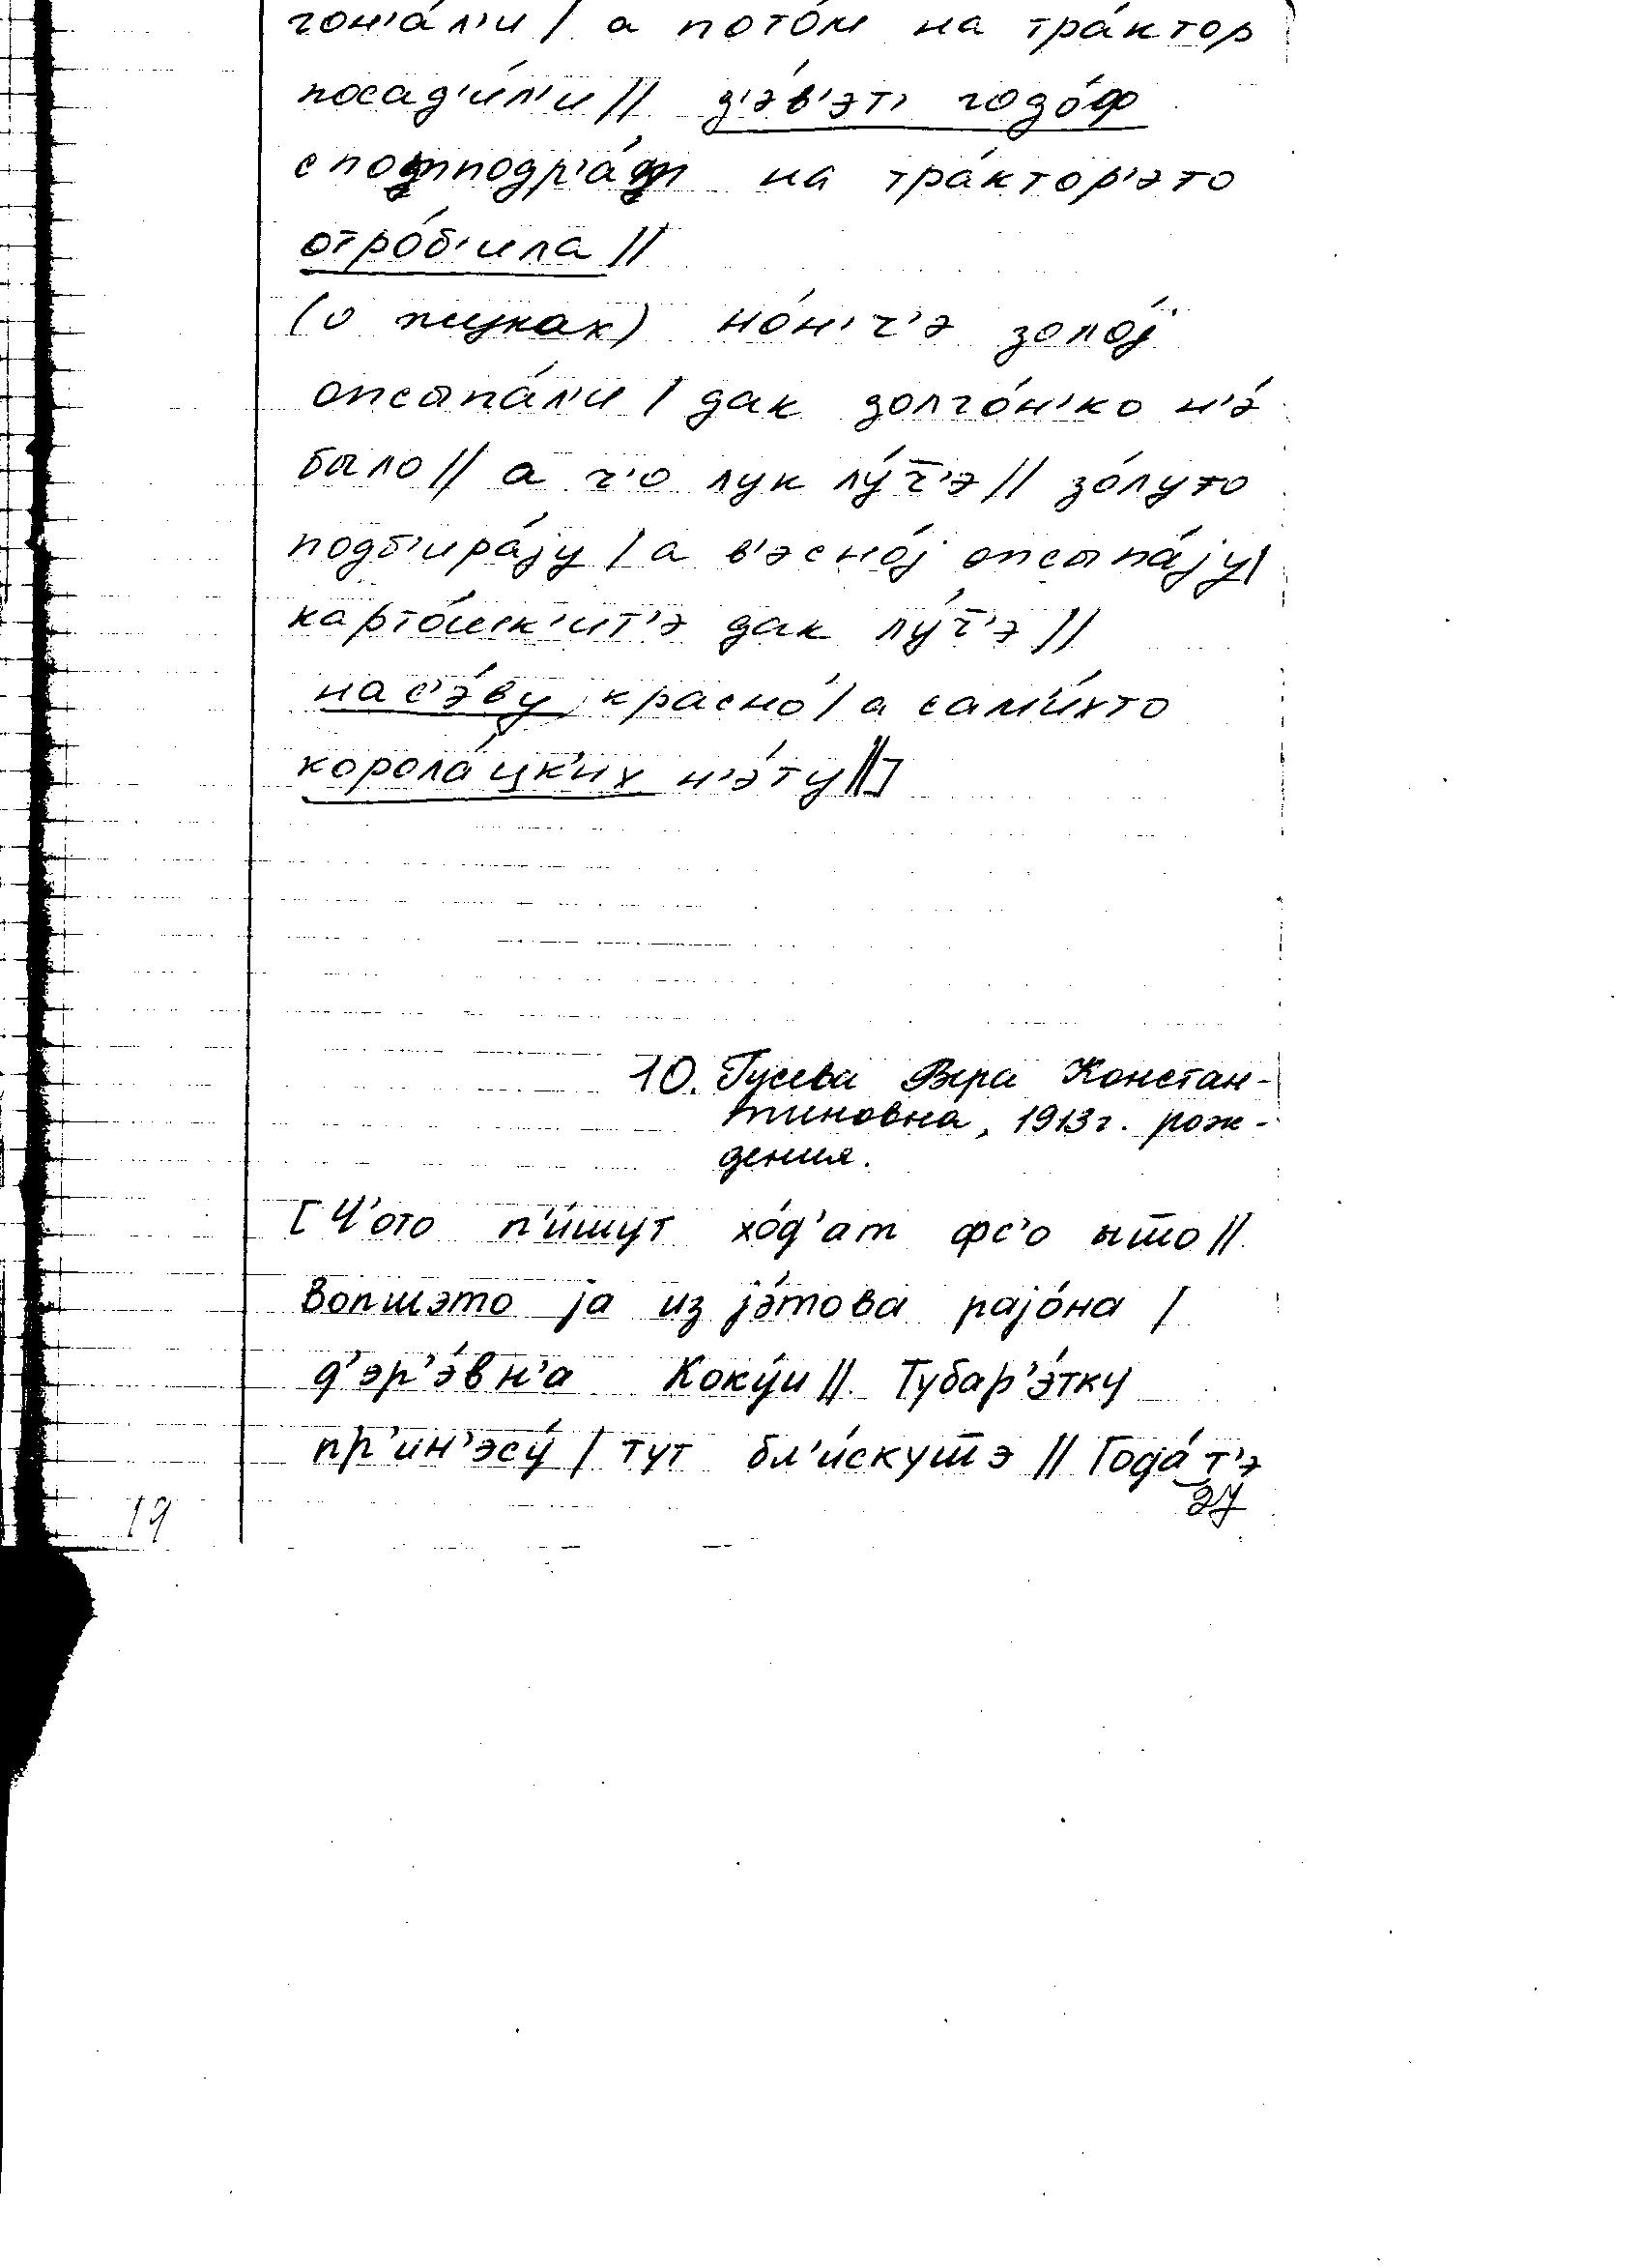 гон'а́л'и / а пото́м на тра́ктор
посад'и́л'и // д'э́в'эт' годо́ф
спотподр'а́т на тра́ктор'это
отро́б'ила //
(о жуках) но́н'ч'э золо́j
опсыпа́л'и / дак долго́н'ко н'э́
было // а ч'о лук лу́ч̅'э // зо́луто
подб'ира́jу / а в'эсно́j опсыпа́jу /
карто́шк'ит'э дак лу́ч̅'э //
нас'э́ву красно́ / а сам'и́хто
корола́цк'их н'э́ту //]
10. Гусева Вера Констан-
тиновна, 1913г. рож-
дения.
[Ч'ото п'и́шут хо́д'ат фс'о ышо //
Вопшэто jа из jэ́това раjо́на /
д'эр'э́вн'а Коку́и // Тубар'э́тку
пр'ин'эсу́ / тут бл'и́скутэ // Года́т'э
27
19